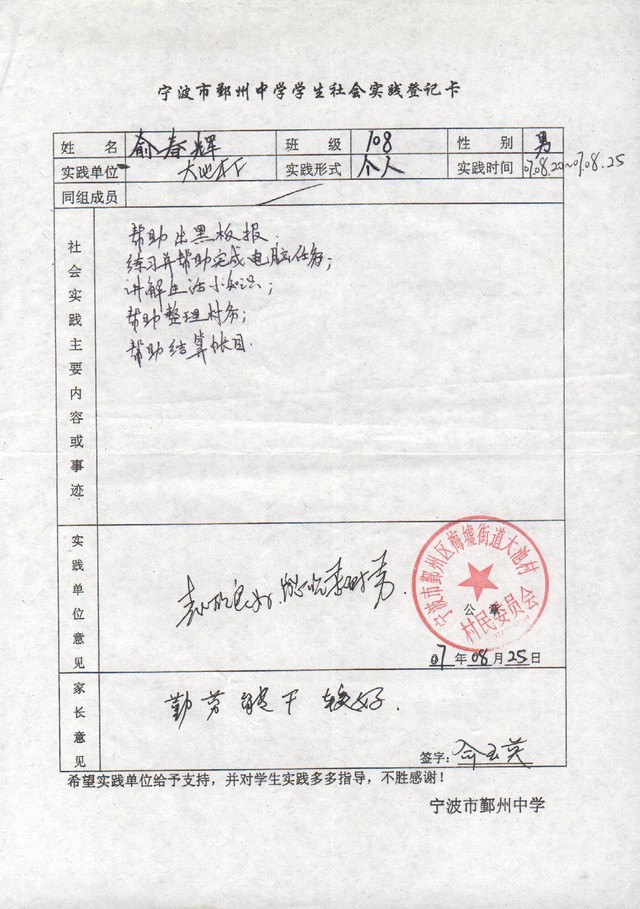 宁波市鄞州中学学生社会实践登记卡
姓 名 俞春辉 班 级 108 性 别 男
实践单位 实践形式 个人 实践时间 07.08.20~07.08.25
同组成员
社会实践主要内容或事迹
帮助出黑板报.
练习并帮助完成电脑任务;
讲解生活小知识;
帮助整理村务;
帮助结算帐目.
实践单位意见
宁波市鄞州区梅墟街道大池村
村民委员会
公 章
07 年 08 月 25 日
家长意见
勤劳能干 较好.
签字: 俞玉英
希望实践单位给予支持，并对学生实践多多指导，不胜感谢！
宁波市鄞州中学